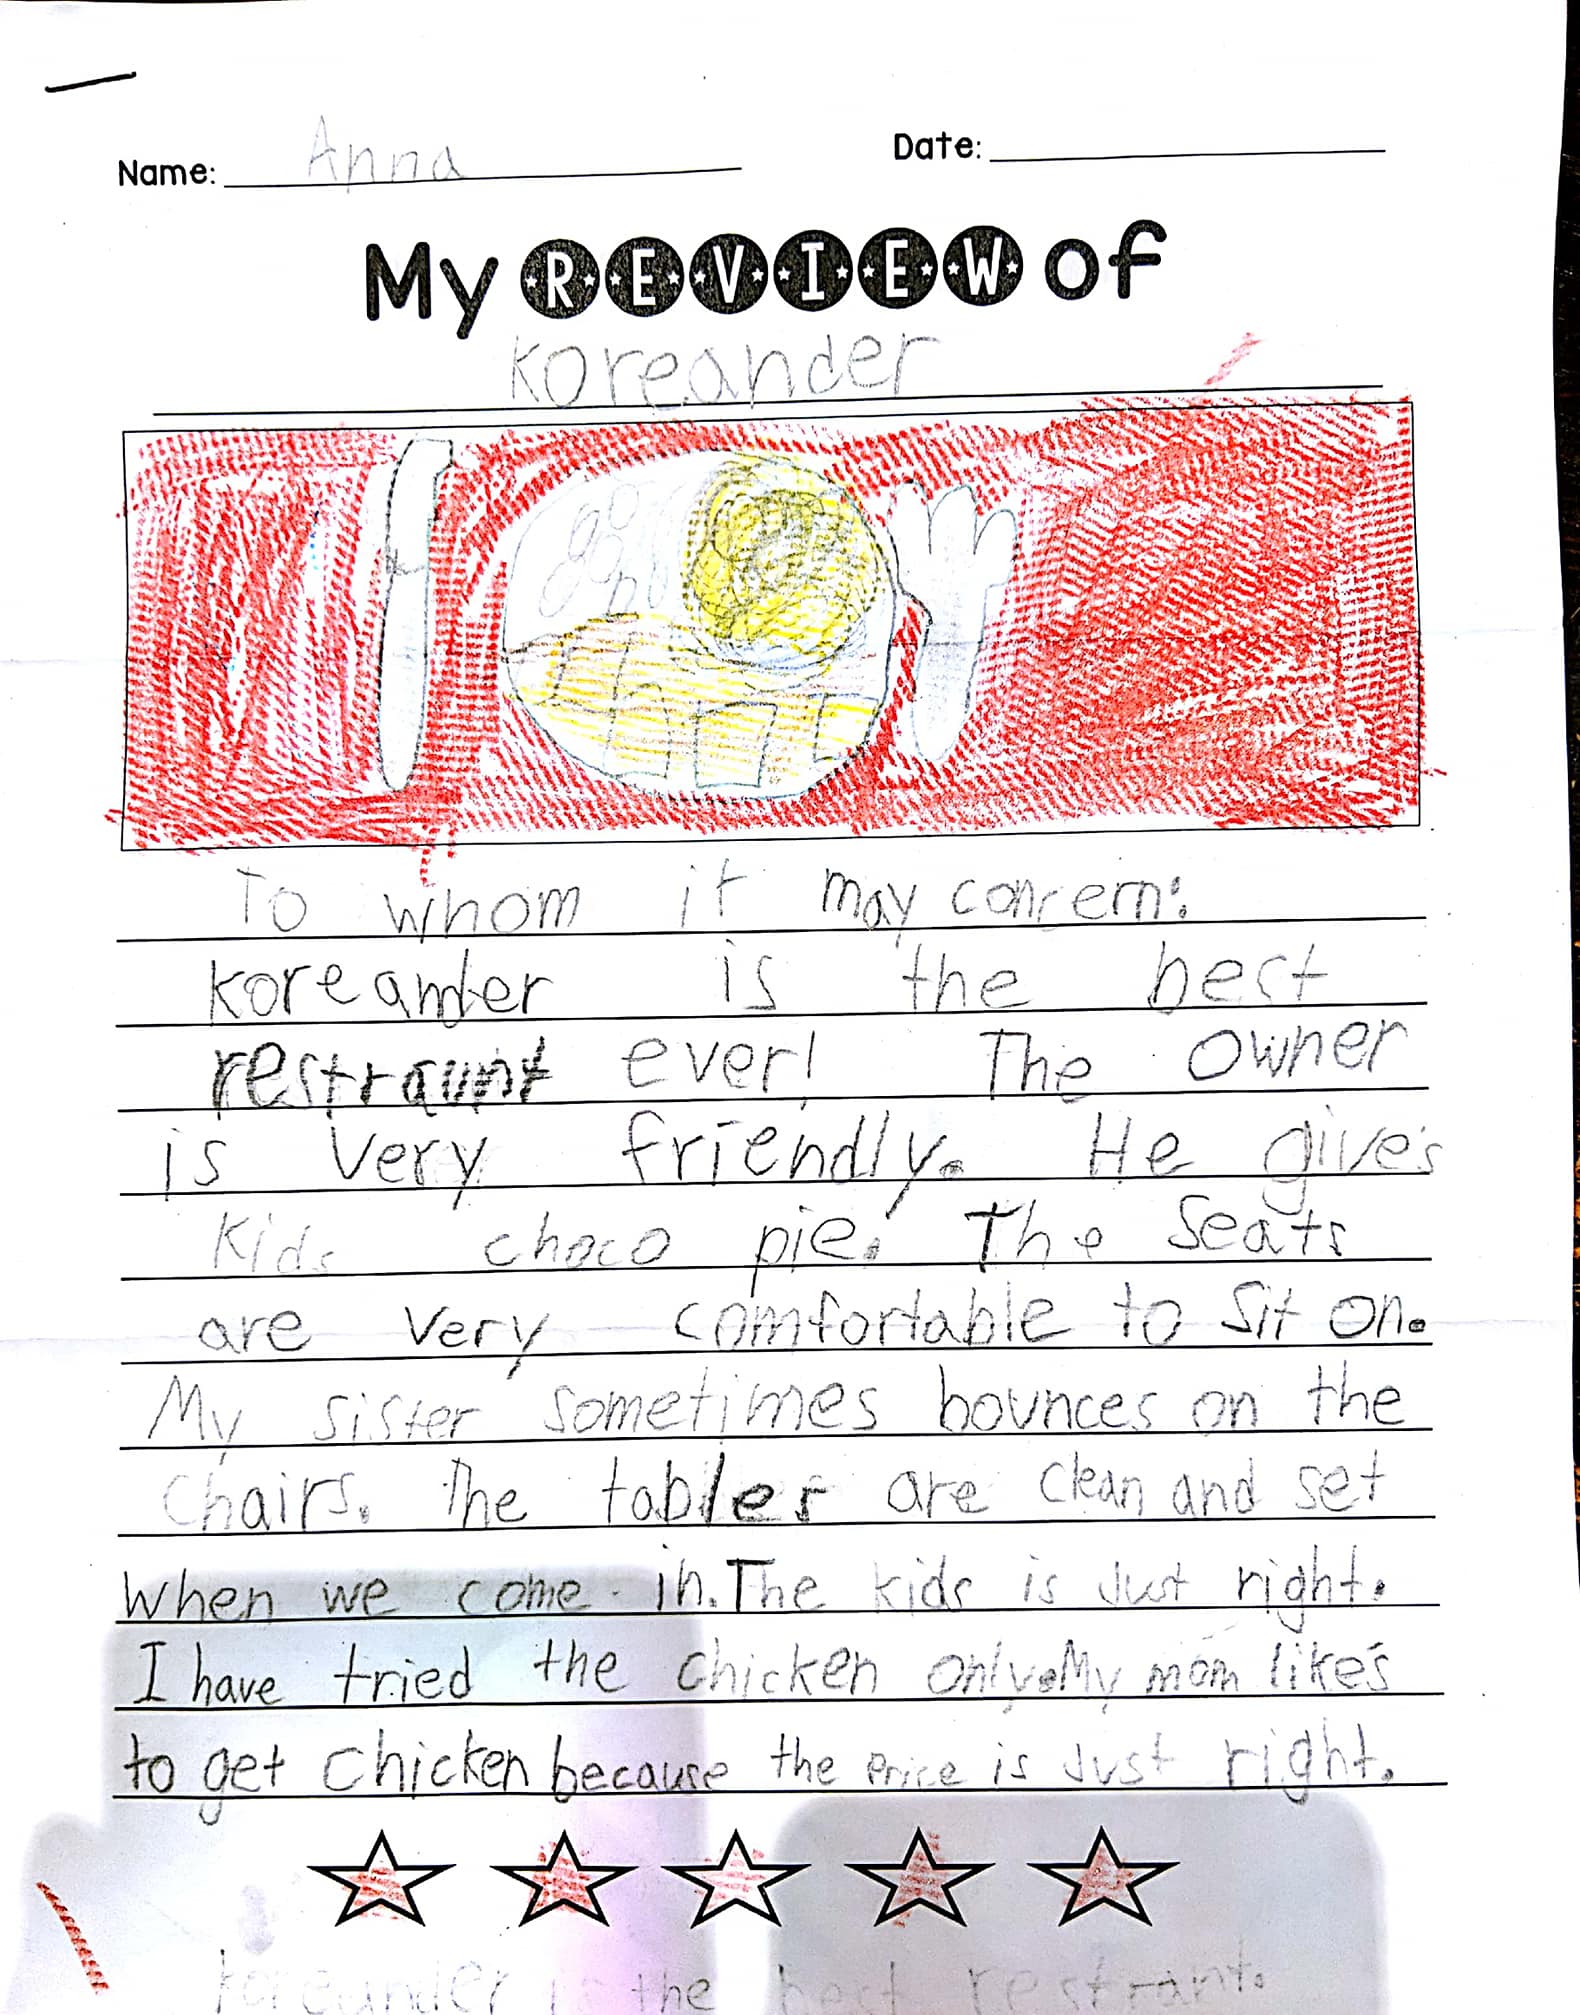 Name: Anna
Date:
My REVIEW of
Koreander
To whom it may concern:
koreander is the best
restraunt ever! The owner
is very friendly. He gives
kids choco pie. The Seats
are very comfortable to sit on.
My sister sometimes bounces on the
chairs. The tables are clean and set
when we come in. The kids is just right.
I have tried the chicken only. My mom likes
to get chicken because the price is just right.
koreander is the best restrant.